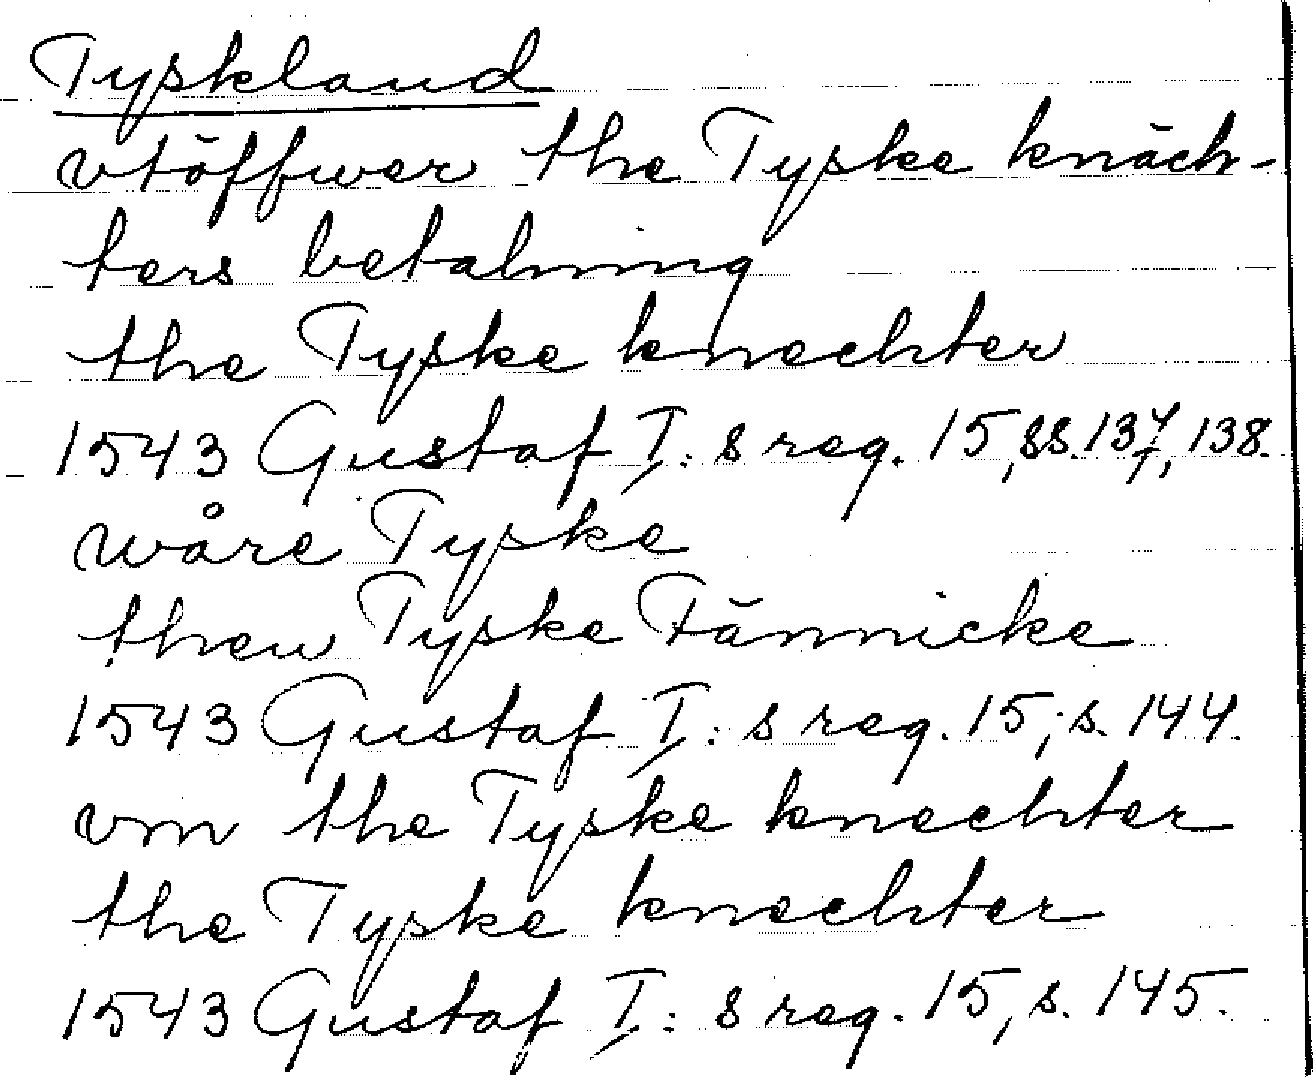 Tyskland
vtöffwer the Tyske knäch-
ters betalning
the Tyske knechter
1543 Gustaf I: s reg. 15, ss. 137, 138.
wåre Tyske
then Tyske Fännicke
1543 Gustaf I: s reg. 15, s. 144.
vm the Tyske knechter
the Tyske knechter
1543 Gustaf I: s reg. 15, s. 145.